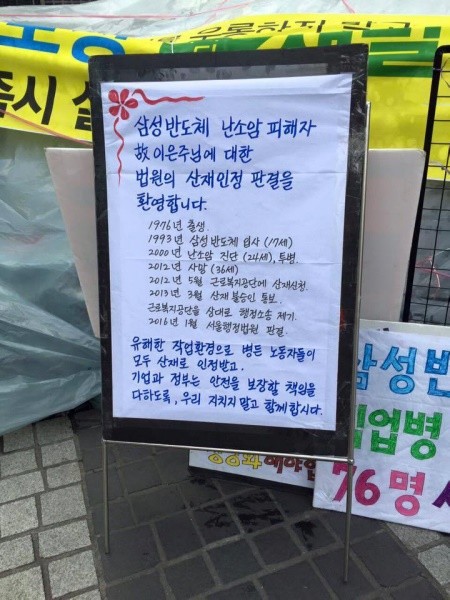 즉시
삼성반도체 난소암 피해자
故 이은주님에 대한
법원의 산재인정 판결을
환영합니다.
1976년 출생.
1993년 삼성반도체 입사 (17세)
2000년 난소암 진단 (24세), 투병.
2012년 사망 (36세)
2012년 5월 근로복지공단에 산재신청.
2013년 3월 산재 불승인 통보.
근로복지공단을 상대로 행정소송 제기.
2016년 1월 서울행정법원 판결.
유해한 작업환경으로 병든 노동자들이
모두 산재로 인정받고.
기업과 정부는 안전을 보장할 책임을
다하도록, 우리 지치지 말고 함께합시다.
삼성반
직업병
76명